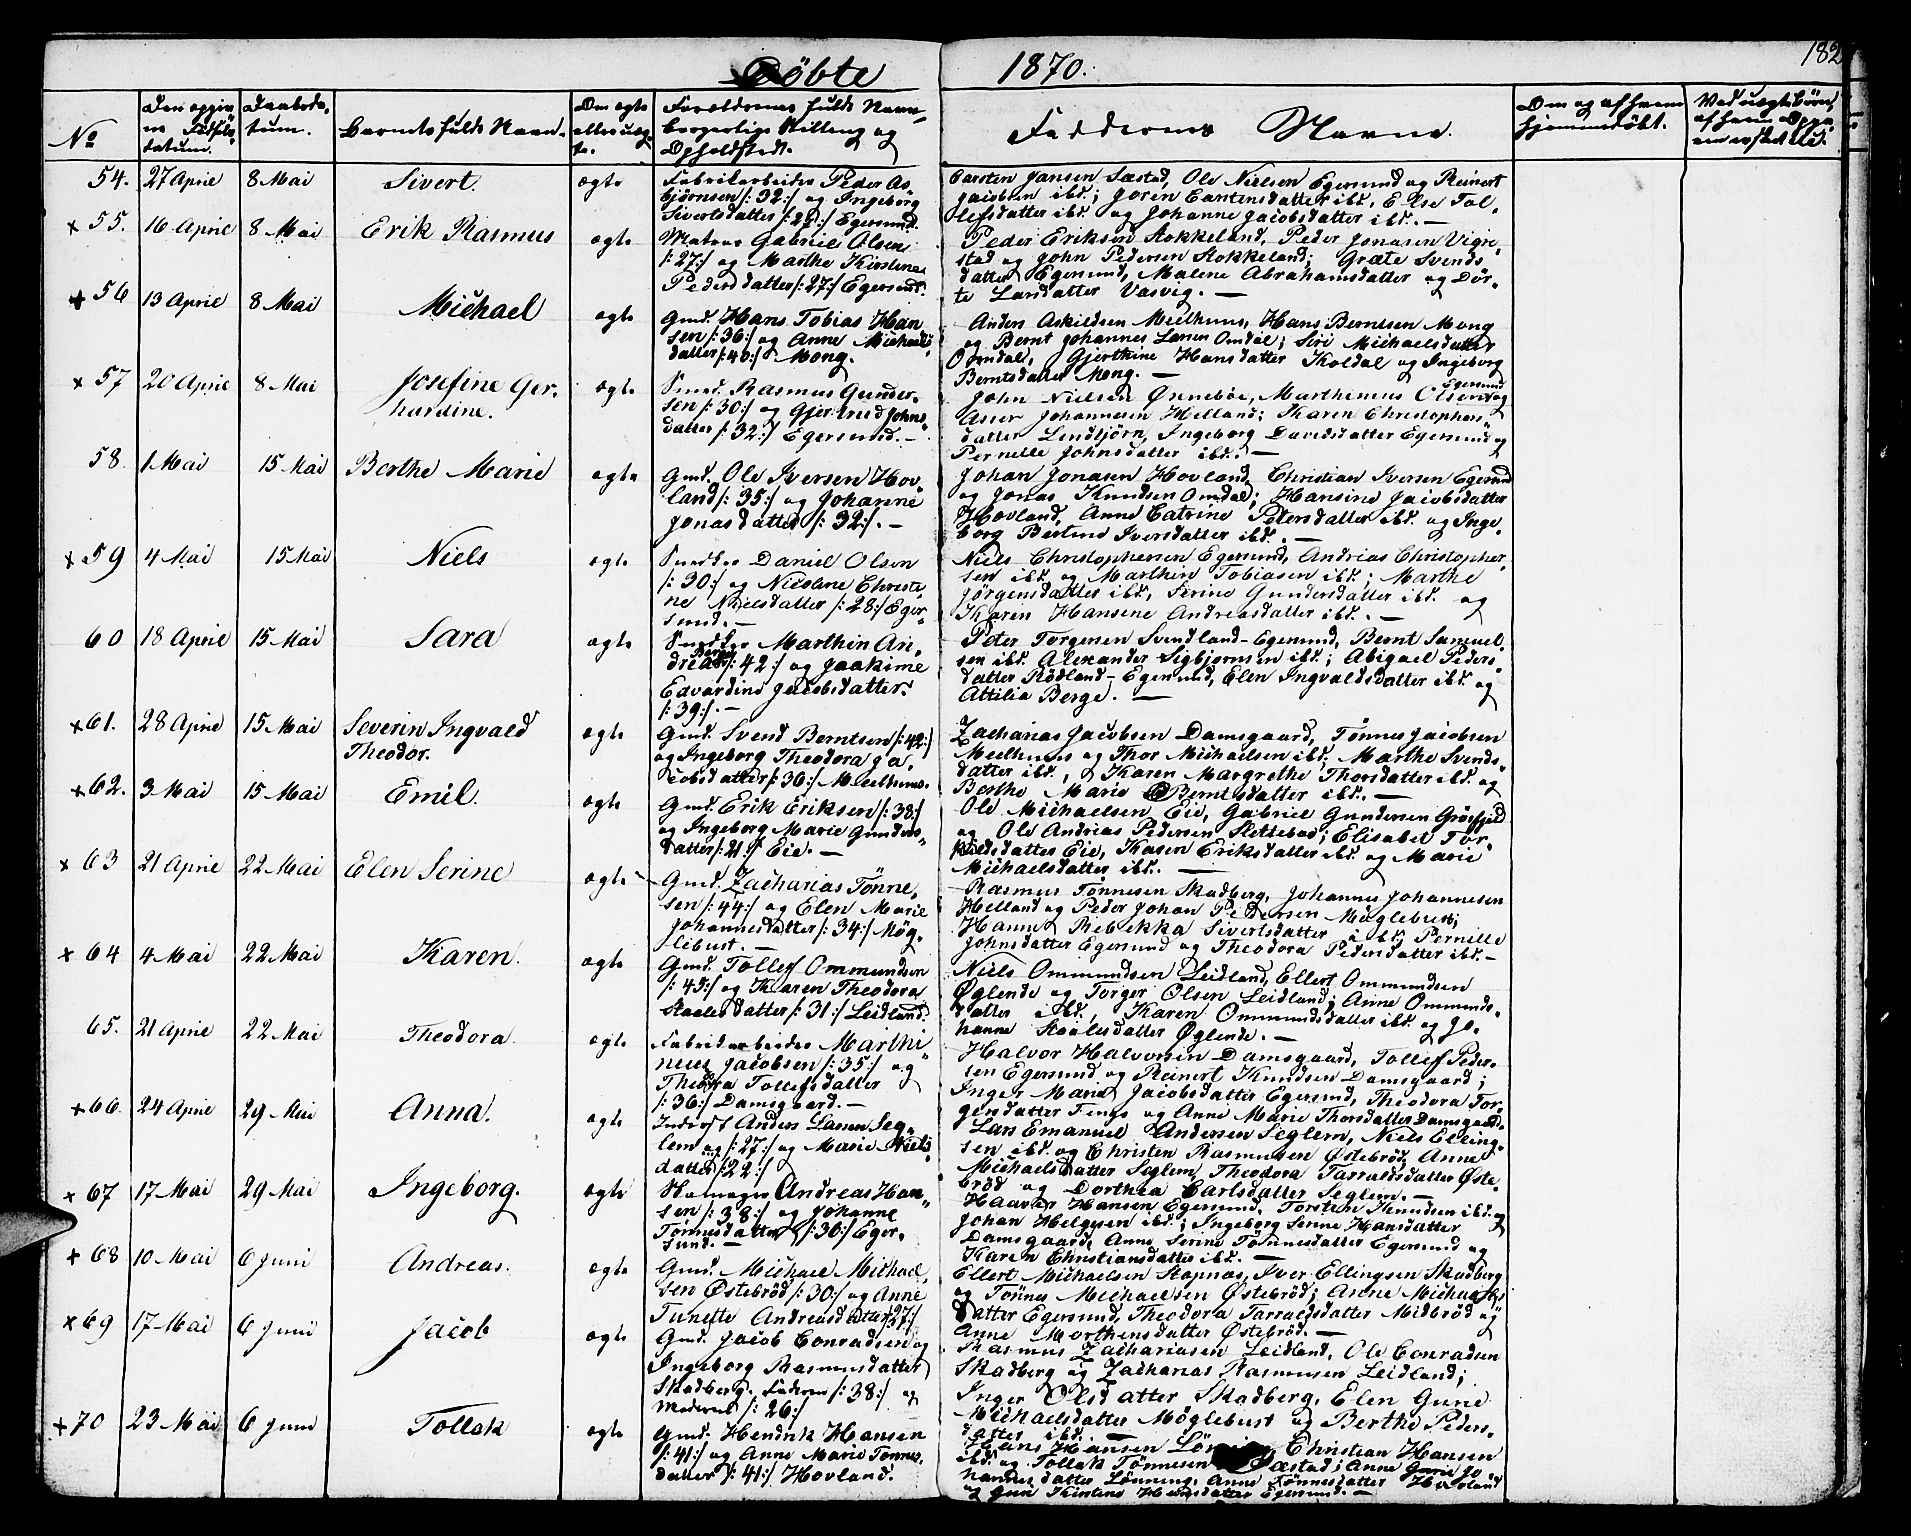 Døbte 1870. 182
No
Den opgiv
ne Fødsels
datum.
Daabsda
tum.
Barnets fulde Navn.
Om ægte
eller uæg
te.
Forældrenes fulde Navn
borgerlige Stilling og
Opholdsted.
Faddernes Navne.
Om og af hvem
hjemmedøbt.
Ved uægte Børn,
af hvem Opga
ven er sted
54. 27 April 8 Mai Sivert. ægte
Fabrikarbeider Peder As-
bjørnsen /: 32:/ og Ingeborg
Sivertsdatter /: 27:/ Egersund.
Carsten Jansen Sæstad, Ole Nielsen Egersund og Reinert
Jacobsen ibd; Joren Carstensdatter ibd. Else Tol-
lefsdatter ibd. og Johanne Jacobsdatter ibd. —
x 55. 16 April 8 Mai Erik Rasmus ægte
Matros Gabriel Olsen
/: 27:/ og Marthe Kirstine
Pedersdatter /: 27:/ Egersund.
Peder Eriksen Stokkeland, Peder Jonasen Vigre-
stad og John Pedersen Stokkeland; Græte Svends
datter Egersund, Malene Abrahamsdatter og Dor-
te Larsdatter Vasvig. —
x 56 13 April 8 Mai Michael ægte
Gmd. Hans Tobias Han
sen /: 36:/ og Anne Michaels
datter /: 40:/ Mong.
Anders Askildsen Mælhuus, Hans Berntsen Mong
og Bernt Johannes Larsen Omdal; Siri Michaelsdatter
Omdal, Gjerthine Hansdatter Koldal og Ingeborg
Berntsdatter Mong. —
x 57 20 April 8 Mai Josefine Ger-
hardine. ægte
Smed Rasmus Gunder-
sen /: 30:/ og Gjertrud Johns-
datter /: 32:/ Egersund. —
John Nielsen Ønnebøe, Marthinius Olsen Egersund og
Asser Johannesen Helland; Karen Christophers-
datter Lendtjörn, Ingeborg Davidsdatter Egersund og
Pernille Johnsdatter ibd. —
58. 1 Mai 15 Mai Berthe Marie ægte
Gmd. Ole Iversen Hov-
land /: 35:/ og Johanne
Jonasdatter /: 32:/. —
Johan Jonasen Hovland, Christian Iversen Egersund
og Jonas Knudsen Omdal; Hansine Jacobsdatter
Hovland, Anne Catrine Petersdatter ibd. og Inge-
borg Bertine Iversdatter ibd. —
x 59 4 Mai 15 Mai Niels ægte
Snedker Daniel Olsen
/: 30:/ og Nicoline Christi-
ne Nielsdatter /: 28:/ Eger-
sund. —
Niels Christophersen Egersund, Andrias Christopher-
sen ibd. og Marthin Tobiasen ibd.; Marthe
Jørgensdatter ibd., Serine Gundersdatter ibd. og
Karen Hansene Andreasdatter ibd. —
60 18 April 15 Mai Sara ægte
Snedker Marthin An-
dreas Berge /: 42:/ og Joakime
Edvardine Jacobsdatter.
/: 39:/. —
Peter Torgersen Svendland - Egersund, Bernt Samuel-
sen ibd. Alexander Sigbjørnsen ibd.; Abigael Peders-
datter Rødland - Egersund, Elen Ingvaldsdatter ibd. og
Attilia Berge. —
x 61. 28 April 15 Mai Severin Ingvald
Theodor. ægte
Gmd. Svend Berntsen /: 42:/
og Ingeborg Theodora Ja-
cobsdatter /: 36:/ Mælhuus.
Zacharias Jacobsen Damsgaard, Tønnes Jacobsen
Mælhuus og Thor Michaelsen ibd. Marthe Svends-
datter ibd., Karen Margrethe Thorsdatter ibd. og
Berthe Marie Berntsdatter ibd. —
x 62. 3 Mai 15 Mai Emil. ægte
Gmd. Erik Eriksen /: 38:/
og Ingeborg Marie Gunders-
datter /: 21:/ Eie. —
Ole Michaelsen Eie, Gabriel Gundersen Gröfjeld
og Ole Andrias Pedersen Slettebøe; Elisabet Tor-
kildsdatter Eie, Karen Eriksdatter ibd. og Marie
Michaelsdatter ibd. —
x 63 21 April 22 Mai Elen Serine ægte
Gmd. Zacharias Tönne-
sen /: 44:/ og Elen Marie
Johannesdatter /: 34:/ Møg-
lebust. —
Rasmus Tønnesen Skadberg, Johannes Johannesen
Helland og Peder Johan Pedersen Møglebust;
Hanne Rebekka Sivertsdatter ibd; Pernille
Johnsdatter Egersund og Theodora Pedersdatter ibd. —
x 64 4 Mai 22 Mai Karen. ægte
Gmd. Tollef Ommundsen
/: 45:/ og Karen Theodora
Staalesdatter /: 31:/ Leidland.
Niels Ommundsen Leidland, Ellert Ommundsen
Øglende og Torger Olsen Leidland; Anne Ommunds-
datter ibd., Karen Ommundsdatter ibd. og Jo-
hanne Staalesdatter Øglende. —
65. 21 April 22 Mai Theodora. ægte
Fabrikarbeider Marthi-
neus Jacobsen /: 35:/ og
Theodora Tollefsdatter
/: 36:/ Damsgaard. —
Halvor Halvorsen Damsgaard, Tollef Peder-
sen Egersund og Reinert Knudsen Damsgaard;
Inger Marie Jacobsdatter Egersund, Theodora Tor-
gersdatter Tengs og Anne Marie Thorsdatter Damsgaard.
x 66. 24 April 29 Mai Anna. ægte
Inderst Anders Larsen Seg-
lem /: 27:/ og Marie Niels-
datter /: 22:/
Lars Emanuel Andersen Seglem, Niels Elling-
sen ibd. og Christen Rasmusen Østebrød; Anne
Michaelsdatter Seglem, Theodora Tarraldsdatter Øste-
brød og Dorthea Carlsdatter Seglem. —
x 67 17 Mai 29 Mai Ingeborg. ægte
Skomager Andreas Han-
sen /: 38:/ og Johanne
Tønnesdatter /: 30:/ Eger-
sund. —
Haaver Hansen Egersund, Torsten Knudsen ibd. og
Johan Helgesen ibd.; Ingeborg Serine Hansdatter
Damsgaard, Anne Serine Tönnesdatter Egersund og
Karen Christiansdatter ibd. —
x 68 10 Mai 6 Juni Andreas. ægte
Gmd. Michael Michael-
sen Østebrød /: 30:/ og Anne
Tunette Andreasdatter /: 27:/
Ellert Michaelsen Stapnes, Iver Ellingsen Skadberg
og Tønnes Michaelsen Østebrød; Anne Michaels
datter Egersund, Theodora Tarraldsdatter Midbrød og
Anne Morthensdatter Østebrød. —
x 69 17 Mai 6 Juni Jacob ægte
Gmd. Jacob Conradsen og
Ingeborg Rasmusdatter
Skadberg. Faderen /: 38:/ og
Moderen /: 26:/
Rasmus Zachariasen Leidland, Ole Conradsen
Skadberg og Zacharias Rasmusen Leidland;
Inger Olsdatter Skadberg, Elen Gune
Michaelsdatter Møglebust og Berthe Peders-
datter ibd. —
x 70 23 Mai 6 Juni Tollak ægte
Gmd. Hendrik Hansen
/: 41:/ og Anne Marie Tønnes-
datter /: 41:/ Hovland.
Hans Hansen Christian Hansen
ibd. og Tollak Tønnesen Sæstad; Anne Jo-
hannesdatter Lønning, Anne Tønnesdatter Hovland
og Kirstine Hansdatter Egersund. —